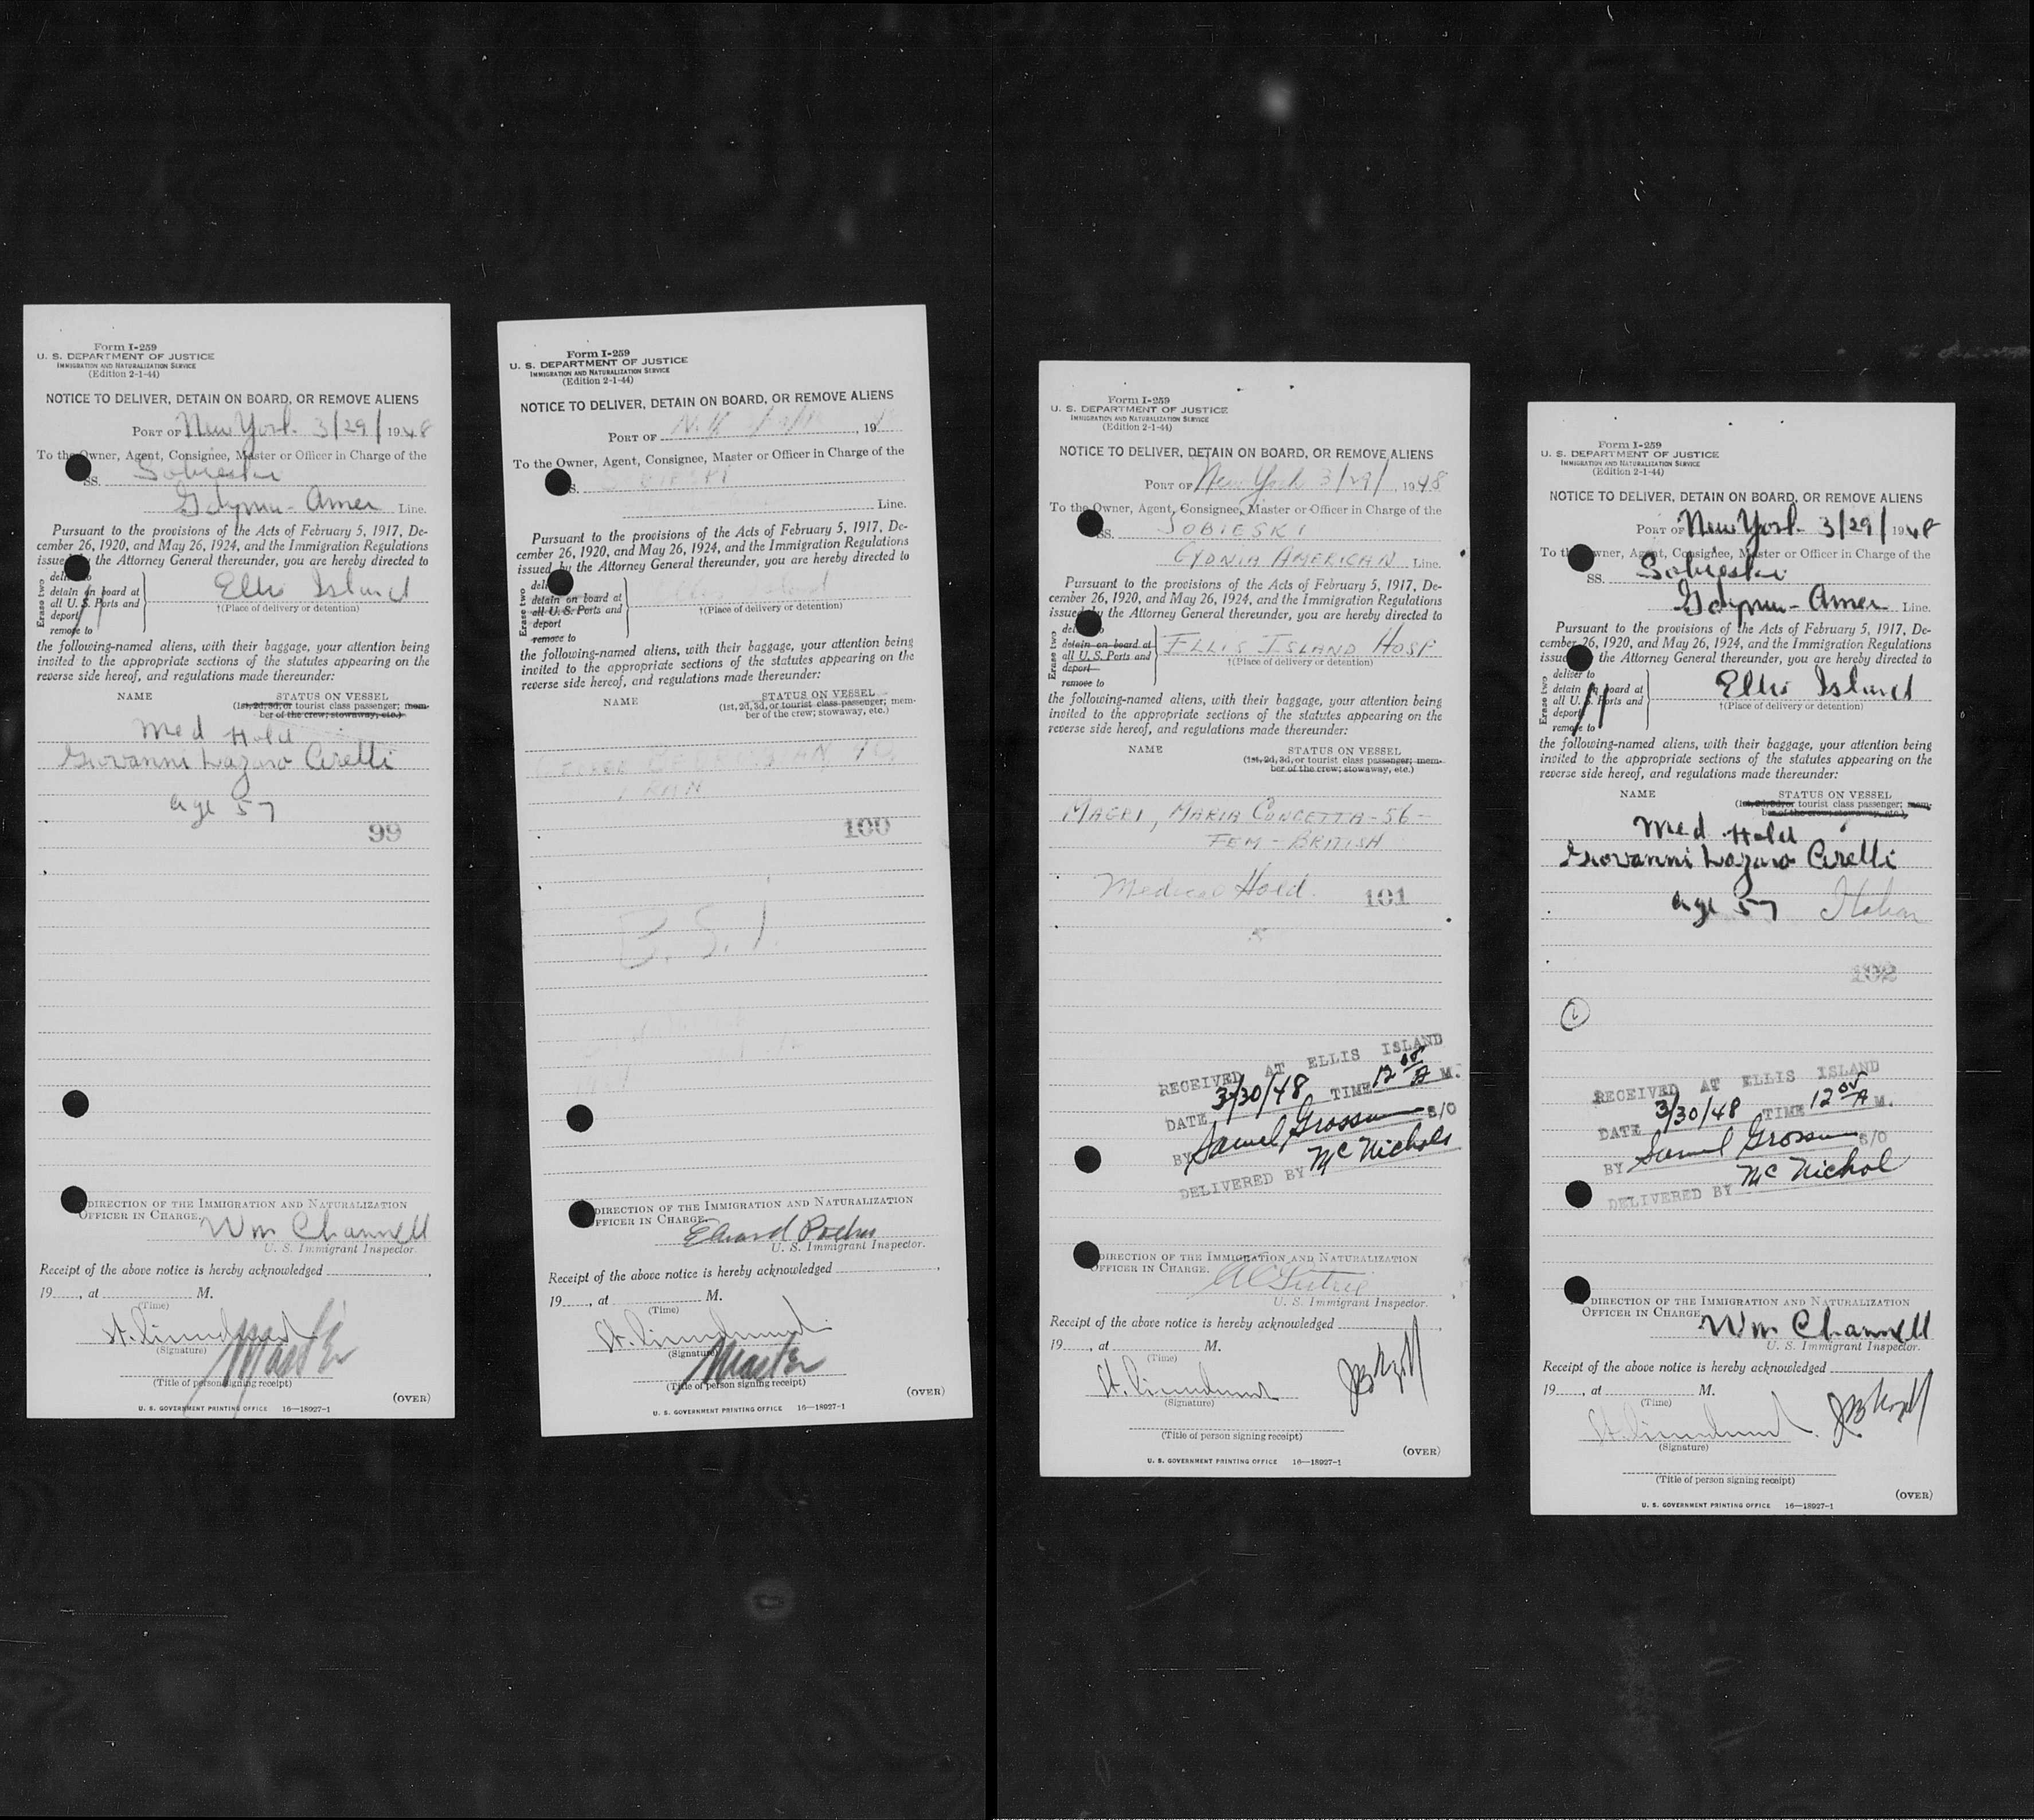 Form I-259
U. S. DEPARTMENT OF JUSTICE
IMMIGRATION AND NATURALIZATION SERVICE
(Edition 2-1-44)
NOTICE TO DELIVER, DETAIN ON BOARD, OR REMOVE ALIENS
PORT OF New York 3/29/1948
To the Owner, Agent, Consignee, Master or Officer in Charge of the
SS. Sobieski
Gdynia-Amer Line.
Pursuant to the provisions of the Acts of February 5, 1917, De-
cember 26, 1920, and May 26, 1924, and the Immigration Regulations
issued by the Attorney General thereunder, you are hereby directed to
Erase two
detain on board at
all U. S. Ports and
deport
remove to
Ellis Island
†(Place of delivery or detention)
the following-named aliens, with their baggage, your attention being
invited to the appropriate sections of the statutes appearing on the
reverse side hereof, and regulations made thereunder:
NAME STATUS ON VESSEL
(1st, 2d, 3d, or tourist class passenger; mem-
ber of the crew; stowaway, etc.)
Med Hold
Giovanni Lazaro Cirelli
age 57
99
DIRECTION OF THE IMMIGRATION AND NATURALIZATION
OFFICER IN CHARGE.
Wm Channell
U. S. Immigrant Inspector.
Receipt of the above notice is hereby acknowledged
19, at M.
(Time)
(Signature)
Master
(Title of person signing receipt)
(OVER)
U. S. GOVERNMENT PRINTING OFFICE 16—18927-1
Form I-259
U. S. DEPARTMENT OF JUSTICE
IMMIGRATION AND NATURALIZATION SERVICE
(Edition 2-1-44)
NOTICE TO DELIVER, DETAIN ON BOARD, OR REMOVE ALIENS
PORT OF N.Y. , 19
To the Owner, Agent, Consignee, Master or Officer in Charge of the
SOBIESKI
Line.
Pursuant to the provisions of the Acts of February 5, 1917, De-
cember 26, 1920, and May 26, 1924, and the Immigration Regulations
issued by the Attorney General thereunder, you are hereby directed to
Erase two
detain on board at
all U. S. Ports and
deport
remove to
Ellis Island
†(Place of delivery or detention)
the following-named aliens, with their baggage, your attention being
invited to the appropriate sections of the statutes appearing on the
reverse side hereof, and regulations made thereunder:
NAME STATUS ON VESSEL
(1st, 2d, 3d, or tourist class passenger; mem-
ber of the crew; stowaway, etc.)
IRAN
100
B.S.I.
DIRECTION OF THE IMMIGRATION AND NATURALIZATION
OFFICER IN CHARGE.
Edward
U. S. Immigrant Inspector.
Receipt of the above notice is hereby acknowledged
19, at M.
(Time)
(Signature)
Master
(Title of person signing receipt)
(OVER)
U. S. GOVERNMENT PRINTING OFFICE 16—18927-1
Form I-259
U. S. DEPARTMENT OF JUSTICE
IMMIGRATION AND NATURALIZATION SERVICE
(Edition 2-1-44)
NOTICE TO DELIVER, DETAIN ON BOARD, OR REMOVE ALIENS
PORT OF New York 3/29/, 1948
To the Owner, Agent, Consignee, Master or Officer in Charge of the
SS. SOBIESKI
GYDNIA AMERICAN Line.
Pursuant to the provisions of the Acts of February 5, 1917, De-
cember 26, 1920, and May 26, 1924, and the Immigration Regulations
issued by the Attorney General thereunder, you are hereby directed to
Erase two
detain on board at
all U. S. Ports and
deport
remove to
ELLIS ISLAND HOSP
†(Place of delivery or detention)
the following-named aliens, with their baggage, your attention being
invited to the appropriate sections of the statutes appearing on the
reverse side hereof, and regulations made thereunder:
NAME STATUS ON VESSEL
(1st, 2d, 3d, or tourist class passenger; mem-
ber of the crew; stowaway, etc.)
MAGRI, MARIA CONCETTA-56-
FEM-BRITISH
Medical Hold. 101
RECEIVED AT ELLIS ISLAND
DATE 3/30/48 TIME 12 05 A M.
BY Samuel Grossman S/O
DELIVERED BY McNichols
DIRECTION OF THE IMMIGRATION AND NATURALIZATION
OFFICER IN CHARGE.
U. S. Immigrant Inspector.
Receipt of the above notice is hereby acknowledged
19, at M.
(Time)
(Signature)
(Title of person signing receipt)
(OVER)
U. S. GOVERNMENT PRINTING OFFICE 16—18927-1
Form I-259
U. S. DEPARTMENT OF JUSTICE
IMMIGRATION AND NATURALIZATION SERVICE
(Edition 2-1-44)
NOTICE TO DELIVER, DETAIN ON BOARD, OR REMOVE ALIENS
PORT OF New York 3/29/1948
To the Owner, Agent, Consignee, Master or Officer in Charge of the
SS. Sobieski
Gdynia-Amer Line.
Pursuant to the provisions of the Acts of February 5, 1917, De-
cember 26, 1920, and May 26, 1924, and the Immigration Regulations
issued by the Attorney General thereunder, you are hereby directed to
Erase two
deliver to
detain on board at
all U. S. Ports and
deport
remove to
Ellis Island
†(Place of delivery or detention)
the following-named aliens, with their baggage, your attention being
invited to the appropriate sections of the statutes appearing on the
reverse side hereof, and regulations made thereunder:
NAME STATUS ON VESSEL
(1st, 2d, 3d, or tourist class passenger; mem-
ber of the crew; stowaway, etc.)
Med Hold
Giovanni Lazaro Cirelli
age 57 Italian
102
RECEIVED AT ELLIS ISLAND
DATE 3/30/48 TIME 12 05 A M.
BY Samuel Grossman S/O
DELIVERED BY McNichol
DIRECTION OF THE IMMIGRATION AND NATURALIZATION
OFFICER IN CHARGE.
Wm Channell
U. S. Immigrant Inspector.
Receipt of the above notice is hereby acknowledged
19, at M.
(Time)
(Signature)
(Title of person signing receipt)
(OVER)
U. S. GOVERNMENT PRINTING OFFICE 16—18927-1